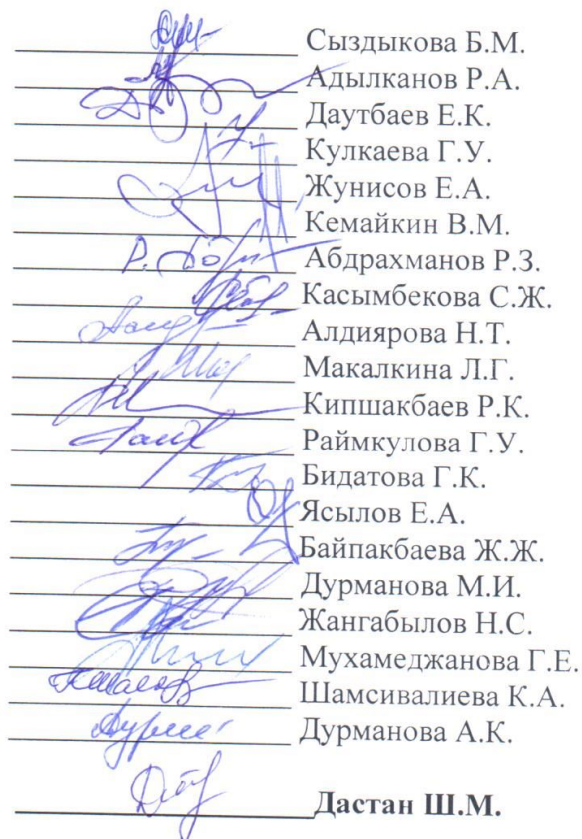 Сыздыкова Б.М.
Адылканов Р.А.
Даутбаев Е.К.
Кулкаева Г.У.
Жунисов Е.А.
Кемайкин В.М.
Абдрахманов Р.З.
Касымбекова С.Ж.
Алдиярова Н.Т.
Макалкина Л.Г.
Кипшакбаев Р.К.
Раимкулова Г.У.
Бидатова Г.К.
Ясылов Е.А.
Байпакбаева Ж.Ж.
Дурманова М.И.
Жангабылов Н.С.
Мухамеджанова Г.Е.
Шамсивалиева К.А.
Дурманова А.К.
Дастан Ш.М.